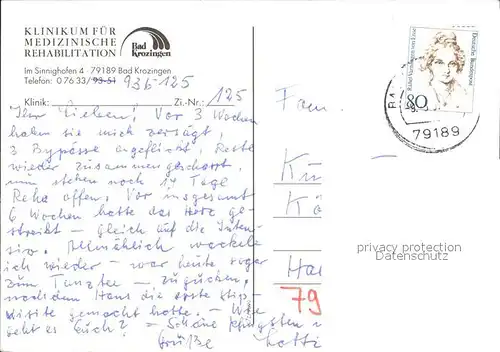 KLINIKUM FÜR
MEDIZINISCHE
REHABILITATION
Bad
Krozingen
Im Sinnighofen 4 · 79189 Bad Krozingen
Telefon: 0 76 33/ 93-51 936-125
Klinik: Zi.-Nr.: 125
Ihr Lieben! Vor 3 Wochen
haben sie mich zersägt,
3 Bypässe angeflickt, Reste
wieder zusammengeschart,
nun stehen noch 14 Tage
Reha offen. Vor insgesamt
6 Wochen hatte das Herz ge-
streikt – gleich auf die Inten-
siv. Allmählich wackele
ich wieder – war heute sogar
zum Tanztee – zugucken,
nachdem Hans die erste Stip-
visite gemacht hatte. – Wie
geht es Euch? – Schöne Pfingsten u
Grüße Lotti
Fam.
Ku
Kö
Ha
79
Deutsche Bundespost
Rahel Varnhagen von Ense
80
BA
79189
privacy protection
Datenschutz